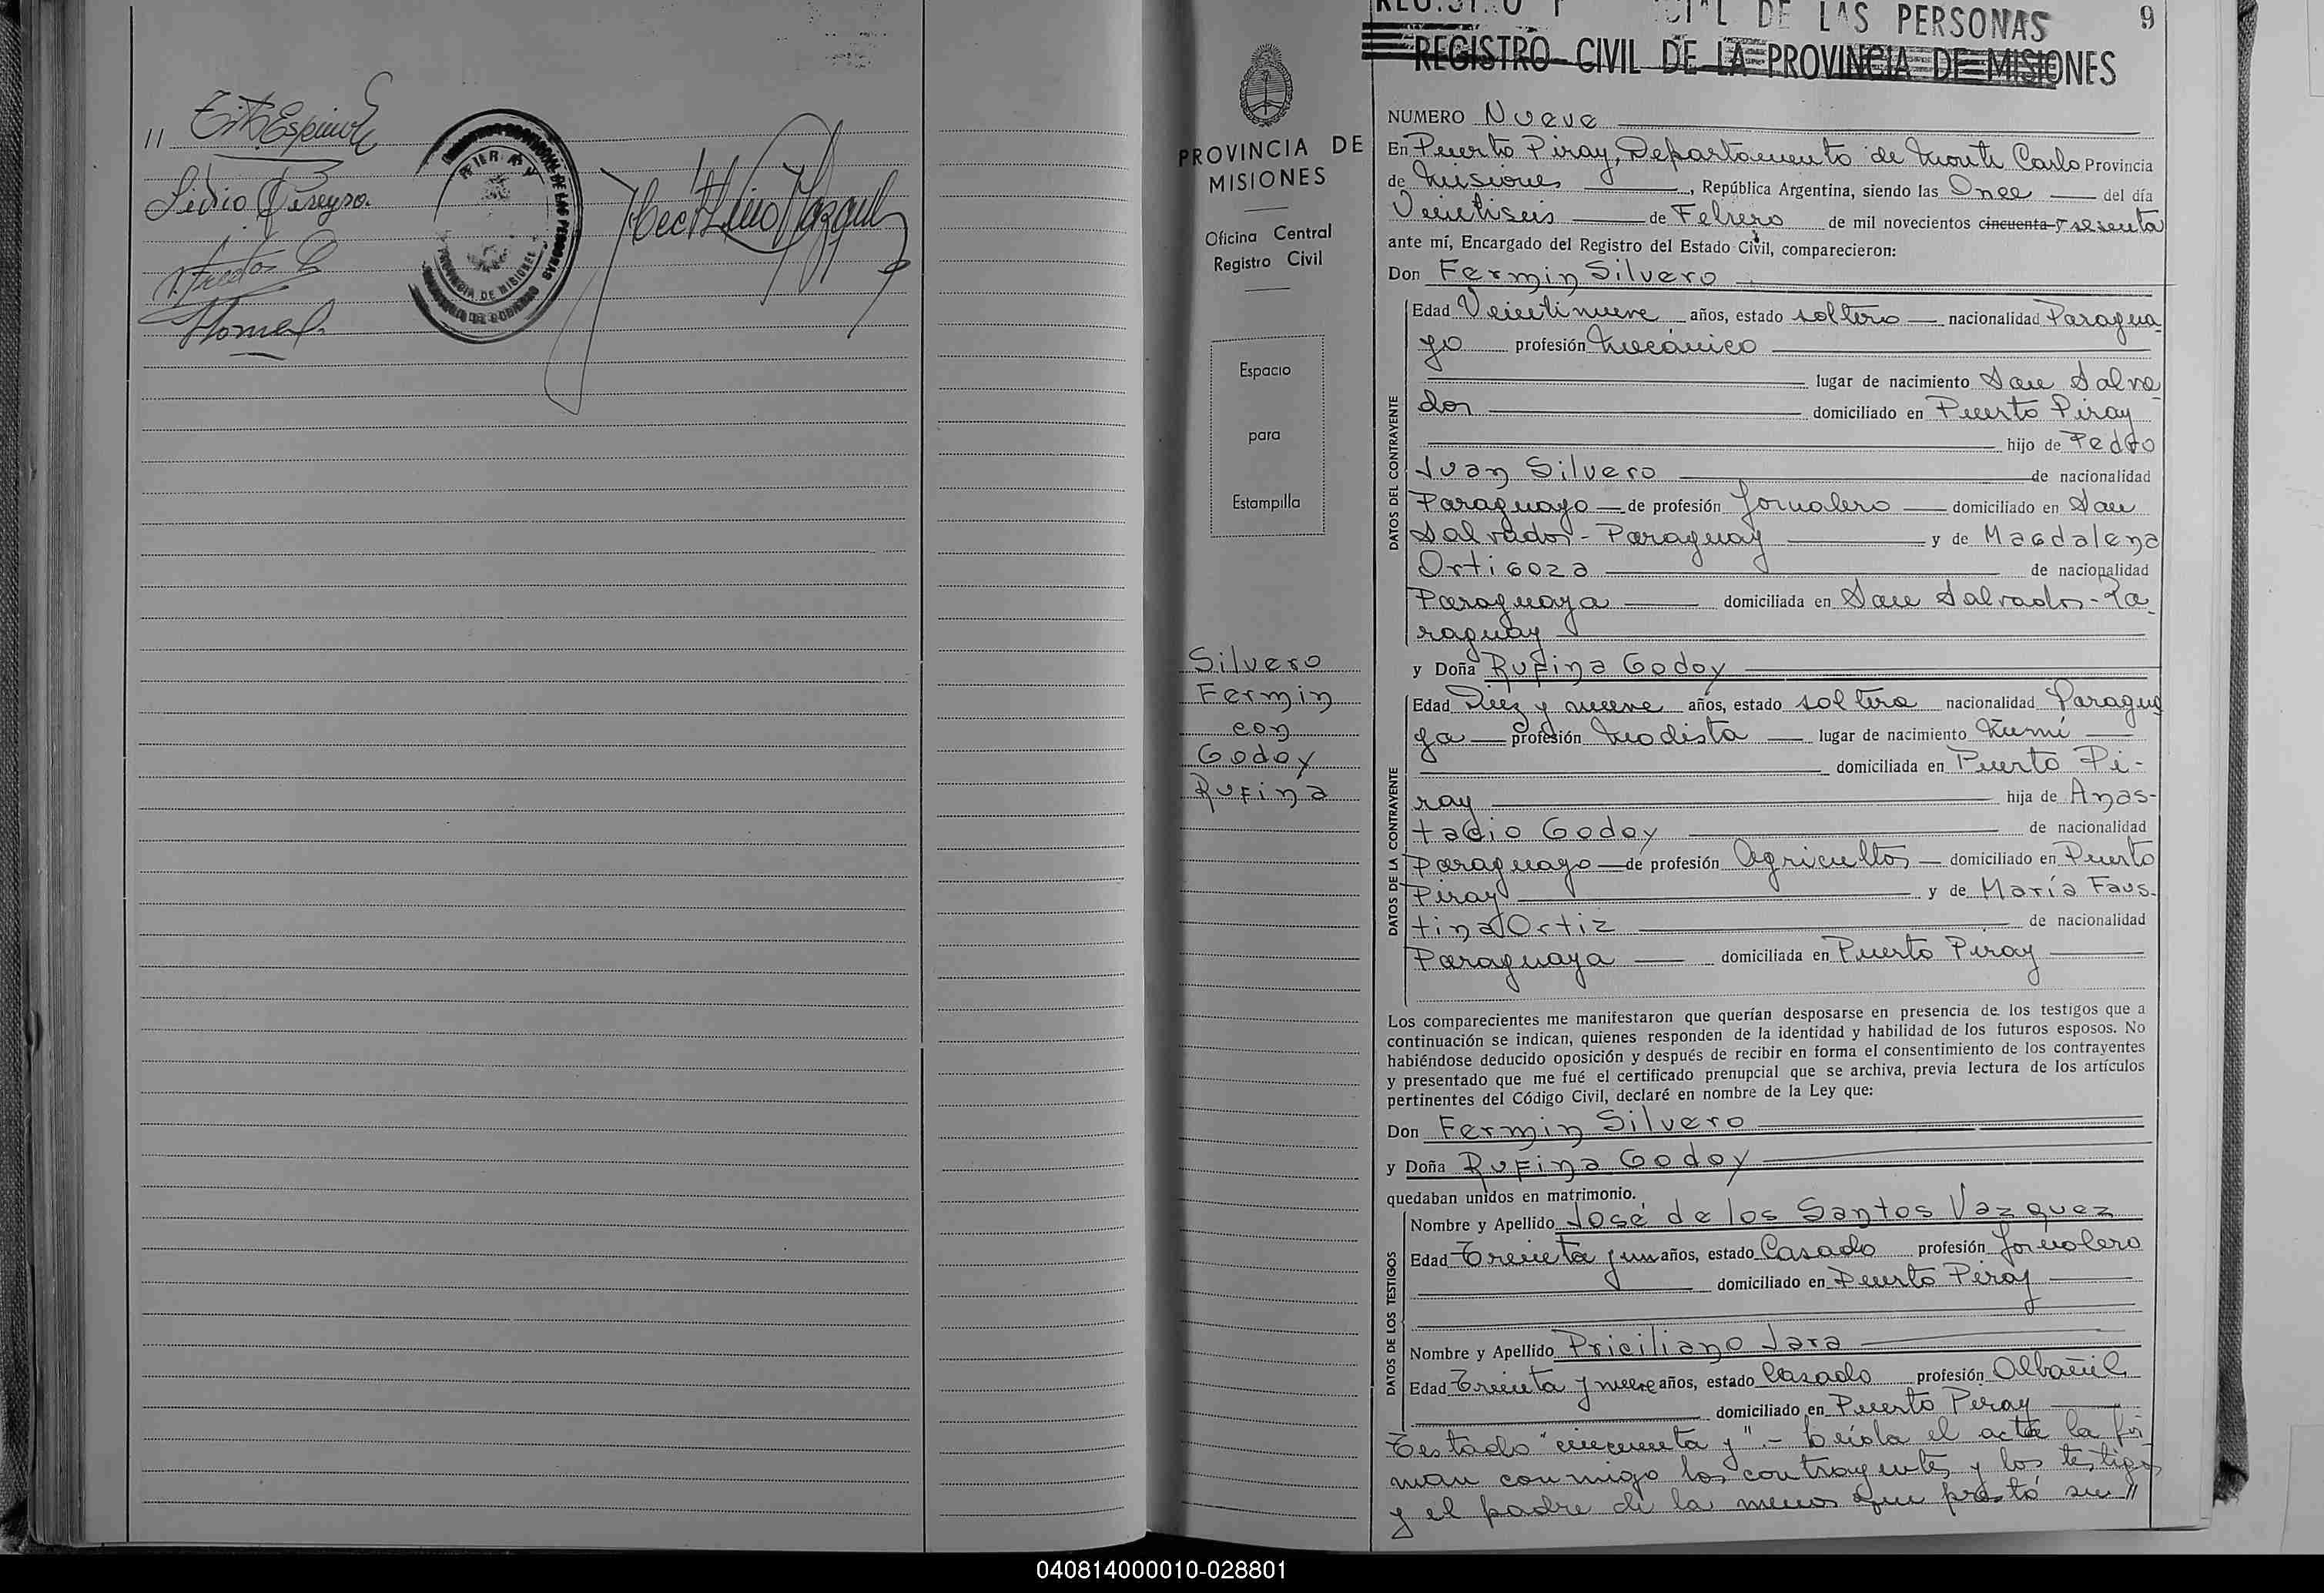 Lidio Pereyra
REGISTRO CIVIL DE LA PROVINCIA DE MISIONES
DE LAS PERSONAS
9
PROVINCIA DE
MISIONES
Oficina Central
Registro Civil
Espacio
para
Estampilla
Silvero
Fermin
con
Godoy
Rufina
NUMERO Nueve
En Puerto Piray, Departamento de Monte Carlo Provincia
de Misiones, República Argentina, siendo las Once del día
Veintiseis de Febrero de mil novecientos cincuenta y sesenta
ante mí, Encargado del Registro del Estado Civil, comparecieron:
Don Fermin Silvero
DATOS DEL CONTRAYENTE
Edad Veintinueve años, estado soltero nacionalidad Paragua
yo profesión Mecánico
lugar de nacimiento San Salva
dor domiciliado en Puerto Piray
hijo de Pedro
Juan Silvero de nacionalidad
Paraguayo de profesión Jornalero domiciliado en San
Salvador - Paraguay y de Magdalena
Ortigoza de nacionalidad
Paraguaya domiciliada en San Salvador - Pa
raguay
y Doña Rufina Godoy
DATOS DE LA CONTRAYENTE
Edad Diez y nueve años, estado soltera nacionalidad Paragua
ya profesión Modista lugar de nacimiento
domiciliada en Puerto Pi-
ray hija de Anas-
tacio Godoy de nacionalidad
Paraguayo de profesión Agricultor domiciliado en Puerto
Piray y de María Faus-
tina Ortiz de nacionalidad
Paraguaya domiciliada en Puerto Piray
Los comparecientes me manifestaron que querían desposarse en presencia de los testigos que a
continuación se indican, quienes responden de la identidad y habilidad de los futuros esposos. No
habiéndose deducido oposición y después de recibir en forma el consentimiento de los contrayentes
y presentado que me fué el certificado prenupcial que se archiva, previa lectura de los artículos
pertinentes del Código Civil, declaré en nombre de la Ley que:
Don Fermin Silvero
y Doña Rufina Godoy
quedaban unidos en matrimonio.
DATOS DE LOS TESTIGOS
Nombre y Apellido José de los Santos Vazquez
Edad Treinta y un años, estado Casado profesión Jornalero
domiciliado en Puerto Piray
Nombre y Apellido Priciliano Jara
Edad Treinta y nueve años, estado Casado profesión Albañil
domiciliado en Puerto Piray
Testado "cincuenta y".- Leída el acta la fir
man conmigo los contrayentes y los testigos
y el padre de la menor que prestó su //
040814000010-028801